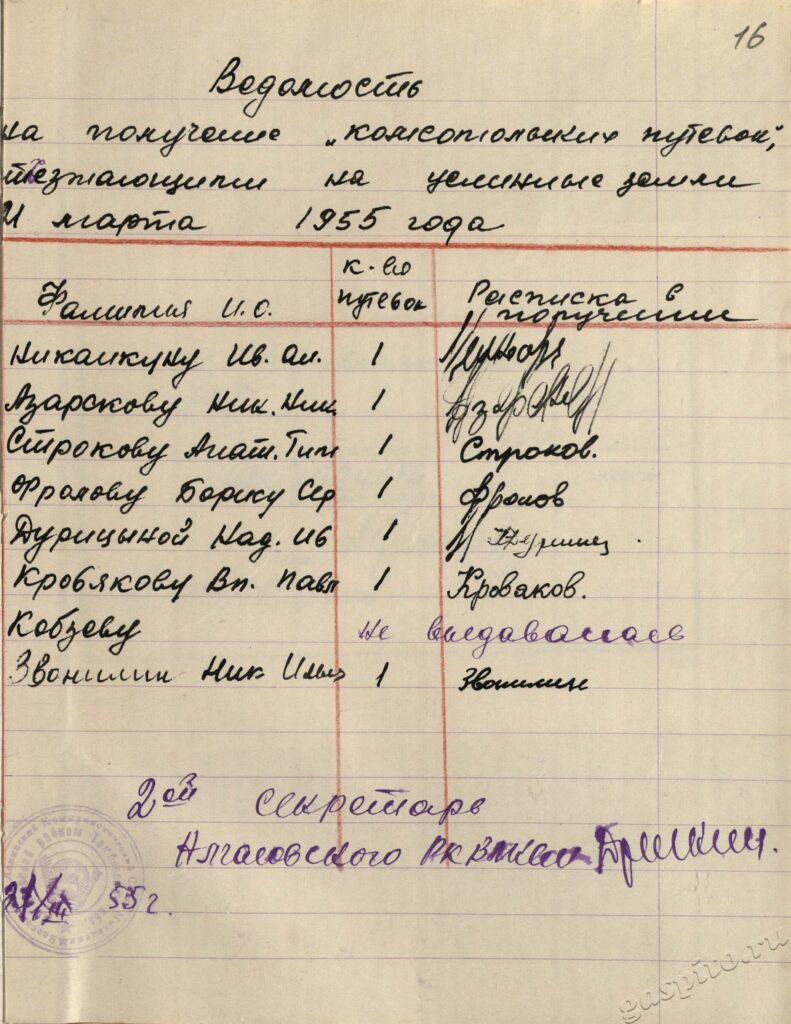 16
Ведомость
на получение „комсомольских путевок",
на целинные земли
марта 1955 года
Фамилия И.О.
к-во путевок
Расписка в получении
Ив. Ал. 1
Азарскову Ник. Ник. 1
Строкову Анат. Тим 1 Строков.
Фролову Борису Сер 1 Фролов
Дурицыной Над. Ив 1
Кробякову Вл. Павл 1 Кроваков.
Кобзеву не выдавалась
Звонилин Ник Ильич 1 Звонилин
2ой секретарь
Алгасовского РК ВЛКСМ
55 г.
gaspito.ru